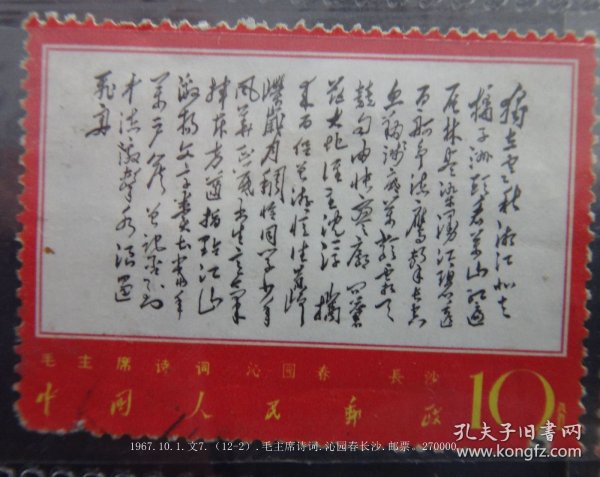 独立寒秋湘江北去
橘子洲头看万山红遍
层林尽染漫江碧透
百舸争流鹰击长空
鱼翔浅底万类霜天
竞自由怅寥廓问苍
茫大地谁主沉浮 携
来百侣曾游忆往昔峥
嵘岁月稠恰同学少年
风华正茂书生意气
挥斥方遒指点江山
激扬文字粪土当年
万户侯曾记否到
中流击水浪遏
飞舟
毛主席诗词 沁园春 長沙
中国人民邮政 10分
1967.10.1.文7.(12-2).毛主席诗词.沁园春长沙.邮票。270000
孔夫子旧书网